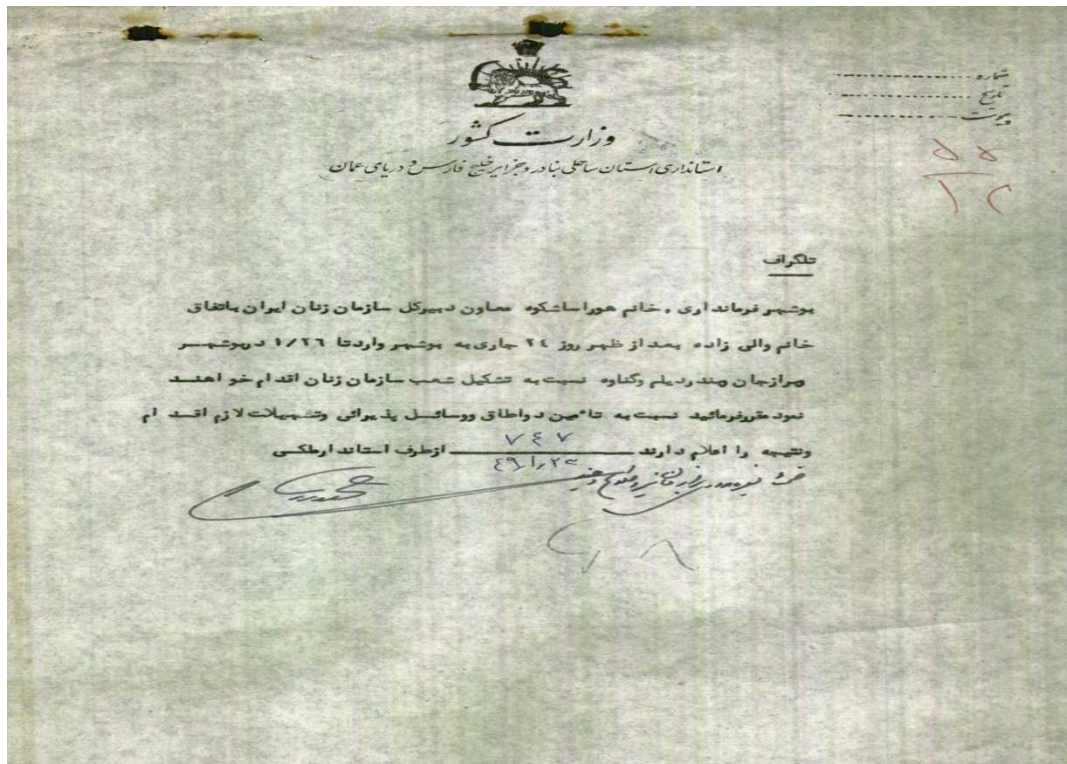 وزارت کشور
استانداری استان ساحلی بنادر و جزایر خلیج فارس و دریای عمان
شماره
تاریخ
پیوست
۵۵
۱۲
تلگراف
بوشهر فرمانداری . خانم هوراساشکوه معاون دبیرکل سازمان زنان ایران باتفاق
خانم والی زاده بعد از ظهر روز ۲۴ جاری به بوشهر واردتا ۱/۲۶ دربوشهر
وبرازجان وبندردیلم وگناوه نسبت به تشکیل شعب سازمان زنان اقدام خواهند
نمود مقررفرمائید نسبت به تاءمین دواطاق ووسائل پذیرائی وتسهیلات لازم اقدام
ونتیجه را اعلام دارند ۷۴۷ ازطرف استاندارملکی
۴۹/۱/۲۳